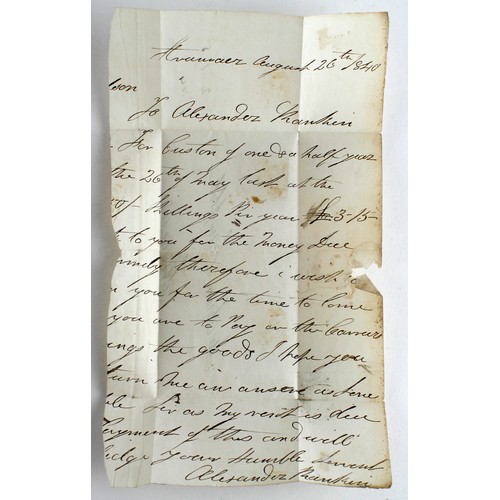 August 26th 1840
son
To Alexander Rankin
For Custom of one & a half year
the 26th of May last at the
of Shillings Pir year £3-15-
to you for the Money Due
therefore i wish to
you for the time to Come
you are to Pay or the Carrier
ings the goods I hope you
turn me an ansere as sone
ble Sir as my rent is due
Payment of this and will
ledge your Humble Servent
Alexander Rankin